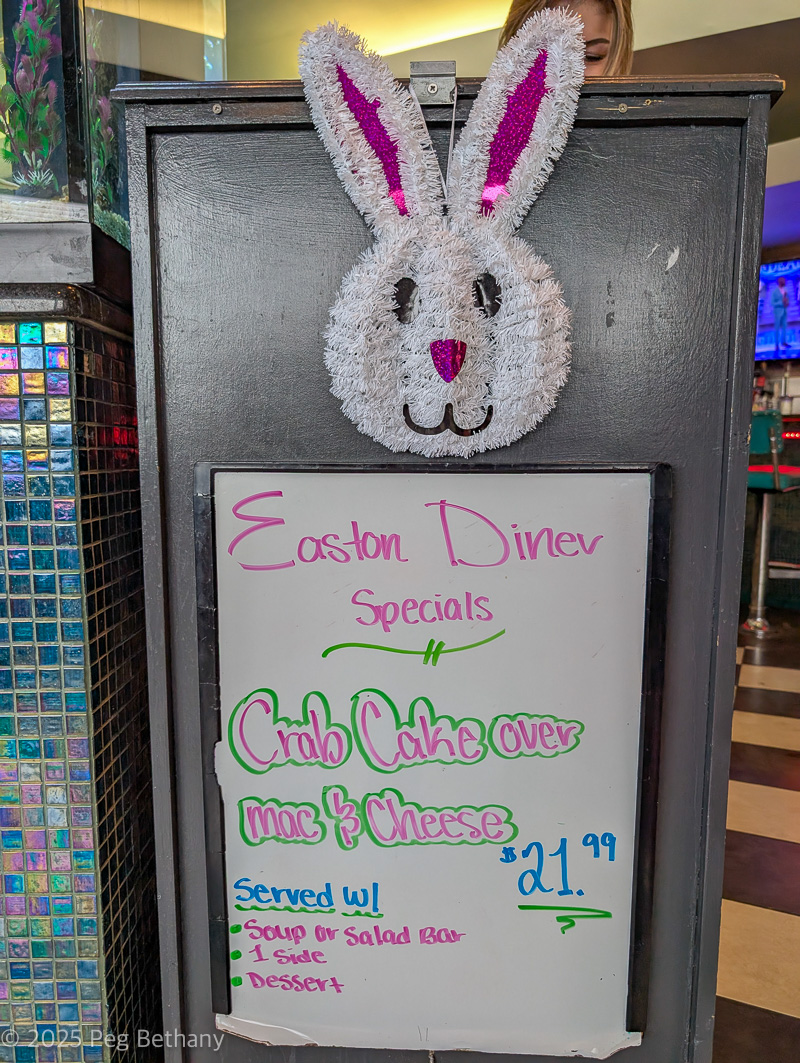 Easton Diner
Specials
Crab Cake over
mac & Cheese
$21.99
Served w/
• Soup or Salad Bar
• 1 Side
• Dessert
© 2025 Peg Bethany